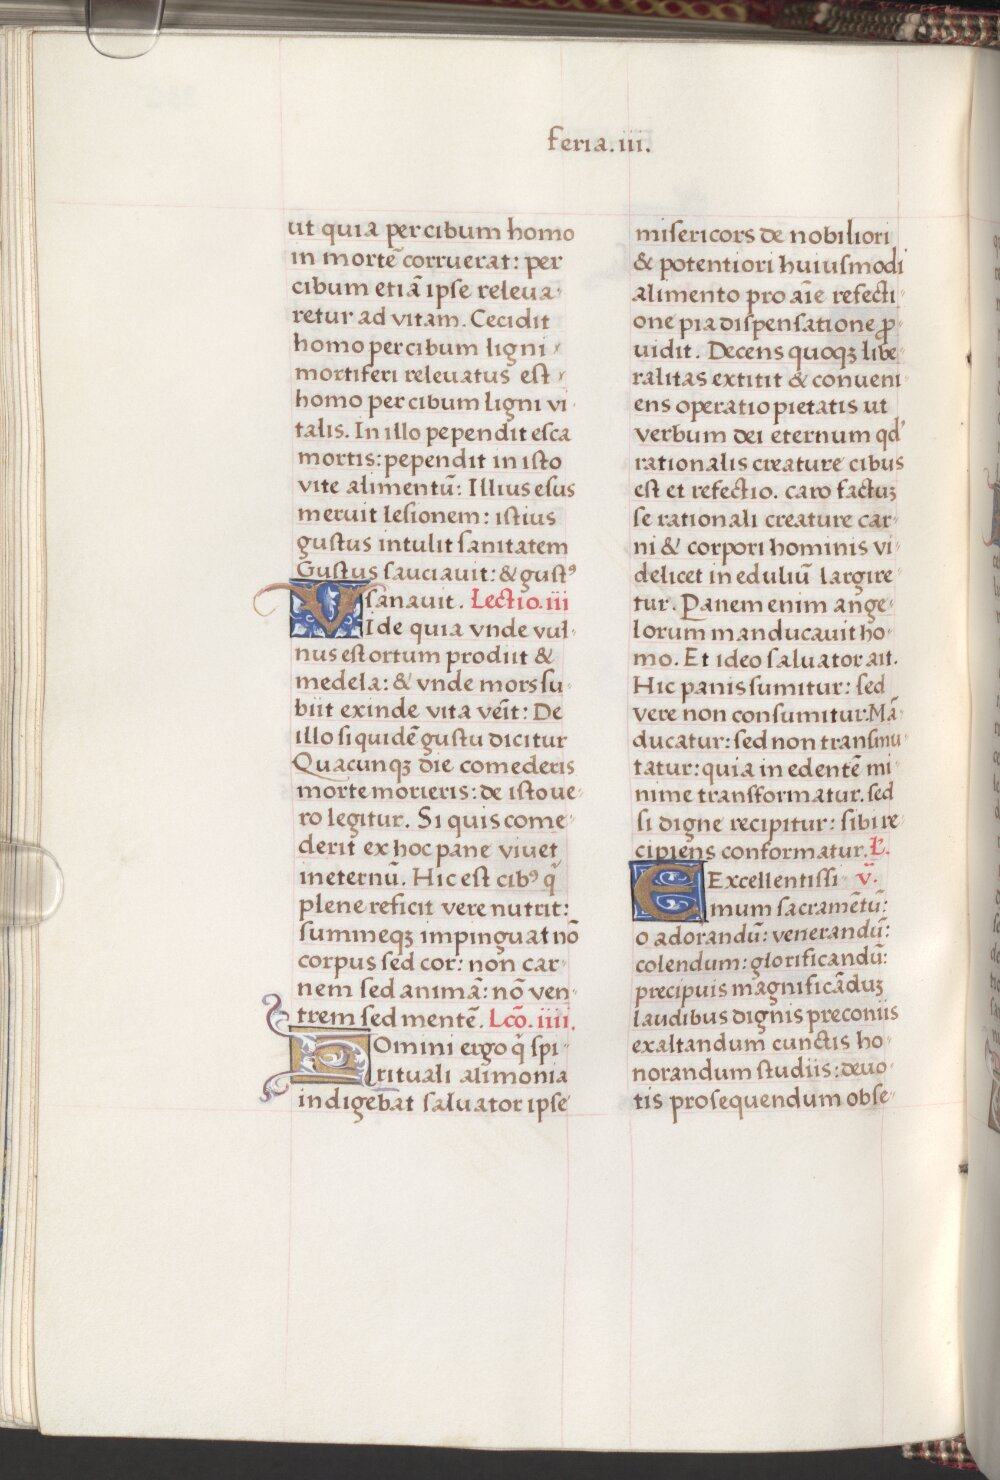 feria.iii.
ut quia per cibum homo
in mortē corruerat: per
cibum etiā ipse releua-
retur ad vitam. Cecidit
homo per cibum ligni
mortiferi releuatus est
homo per cibum ligni vi-
talis. In illo pependit esca
mortis: pependit in isto
vite alimentū: Illius esus
meruit lesionem: istius
gustus intulit sanitatem
Gustus sauciauit: & gustꝰ
sanauit. Lectio.iii
VIde quia vnde vul-
nus est ortum prodiit &
medela: & vnde mors su-
biit exinde vita vēit: De
illo siquidē gustu dicitur
Quacunqꝫ die comederis
morte morieris: de isto ve-
ro legitur. Si quis come-
derit ex hoc pane viuet
in eternū. Hic est cibꝰ q̄
plene reficit vere nutrit:
summeqꝫ impinguat nō
corpus sed cor: non car-
nem sed animā: nō ven-
trem sed mentē. Lcō. iiii.
HOmini ergo q̄ spi-
rituali alimonia
indigebat saluator ipse
misericors de nobiliori
& potentiori huiusmodi
alimento pro aīe refecti-
one pia dispensatione ꝓ-
uidit. Decens quoqꝫ libe-
ralitas extitit & conueni-
ens operatio pietatis ut
verbum dei eternum qd'
rationalis creature cibus
est et refectio. caro factuꝫ
se rationali creature car-
ni & corpori hominis vi-
delicet in eduliū largire-
tur. Panem enim ange-
lorum manducauit ho-
mo. Et ideo saluator ait.
Hic panis sumitur: sed
vere non consumitur. Mā-
ducatur: sed non transmu-
tatur: quia in edentē mi-
nime transformatur. sed
si digne recipitur: sibi re-
cipiens conformatur. Ł.
EExcellentissi- v.
mum sacramētū:
o adorandū: venerandū:
colendum: glorificandū:
precipuis magnificāduꝫ
laudibus dignis preconiis
exaltandum cunctis ho-
norandum studiis: deuo-
tis prosequendum obse-